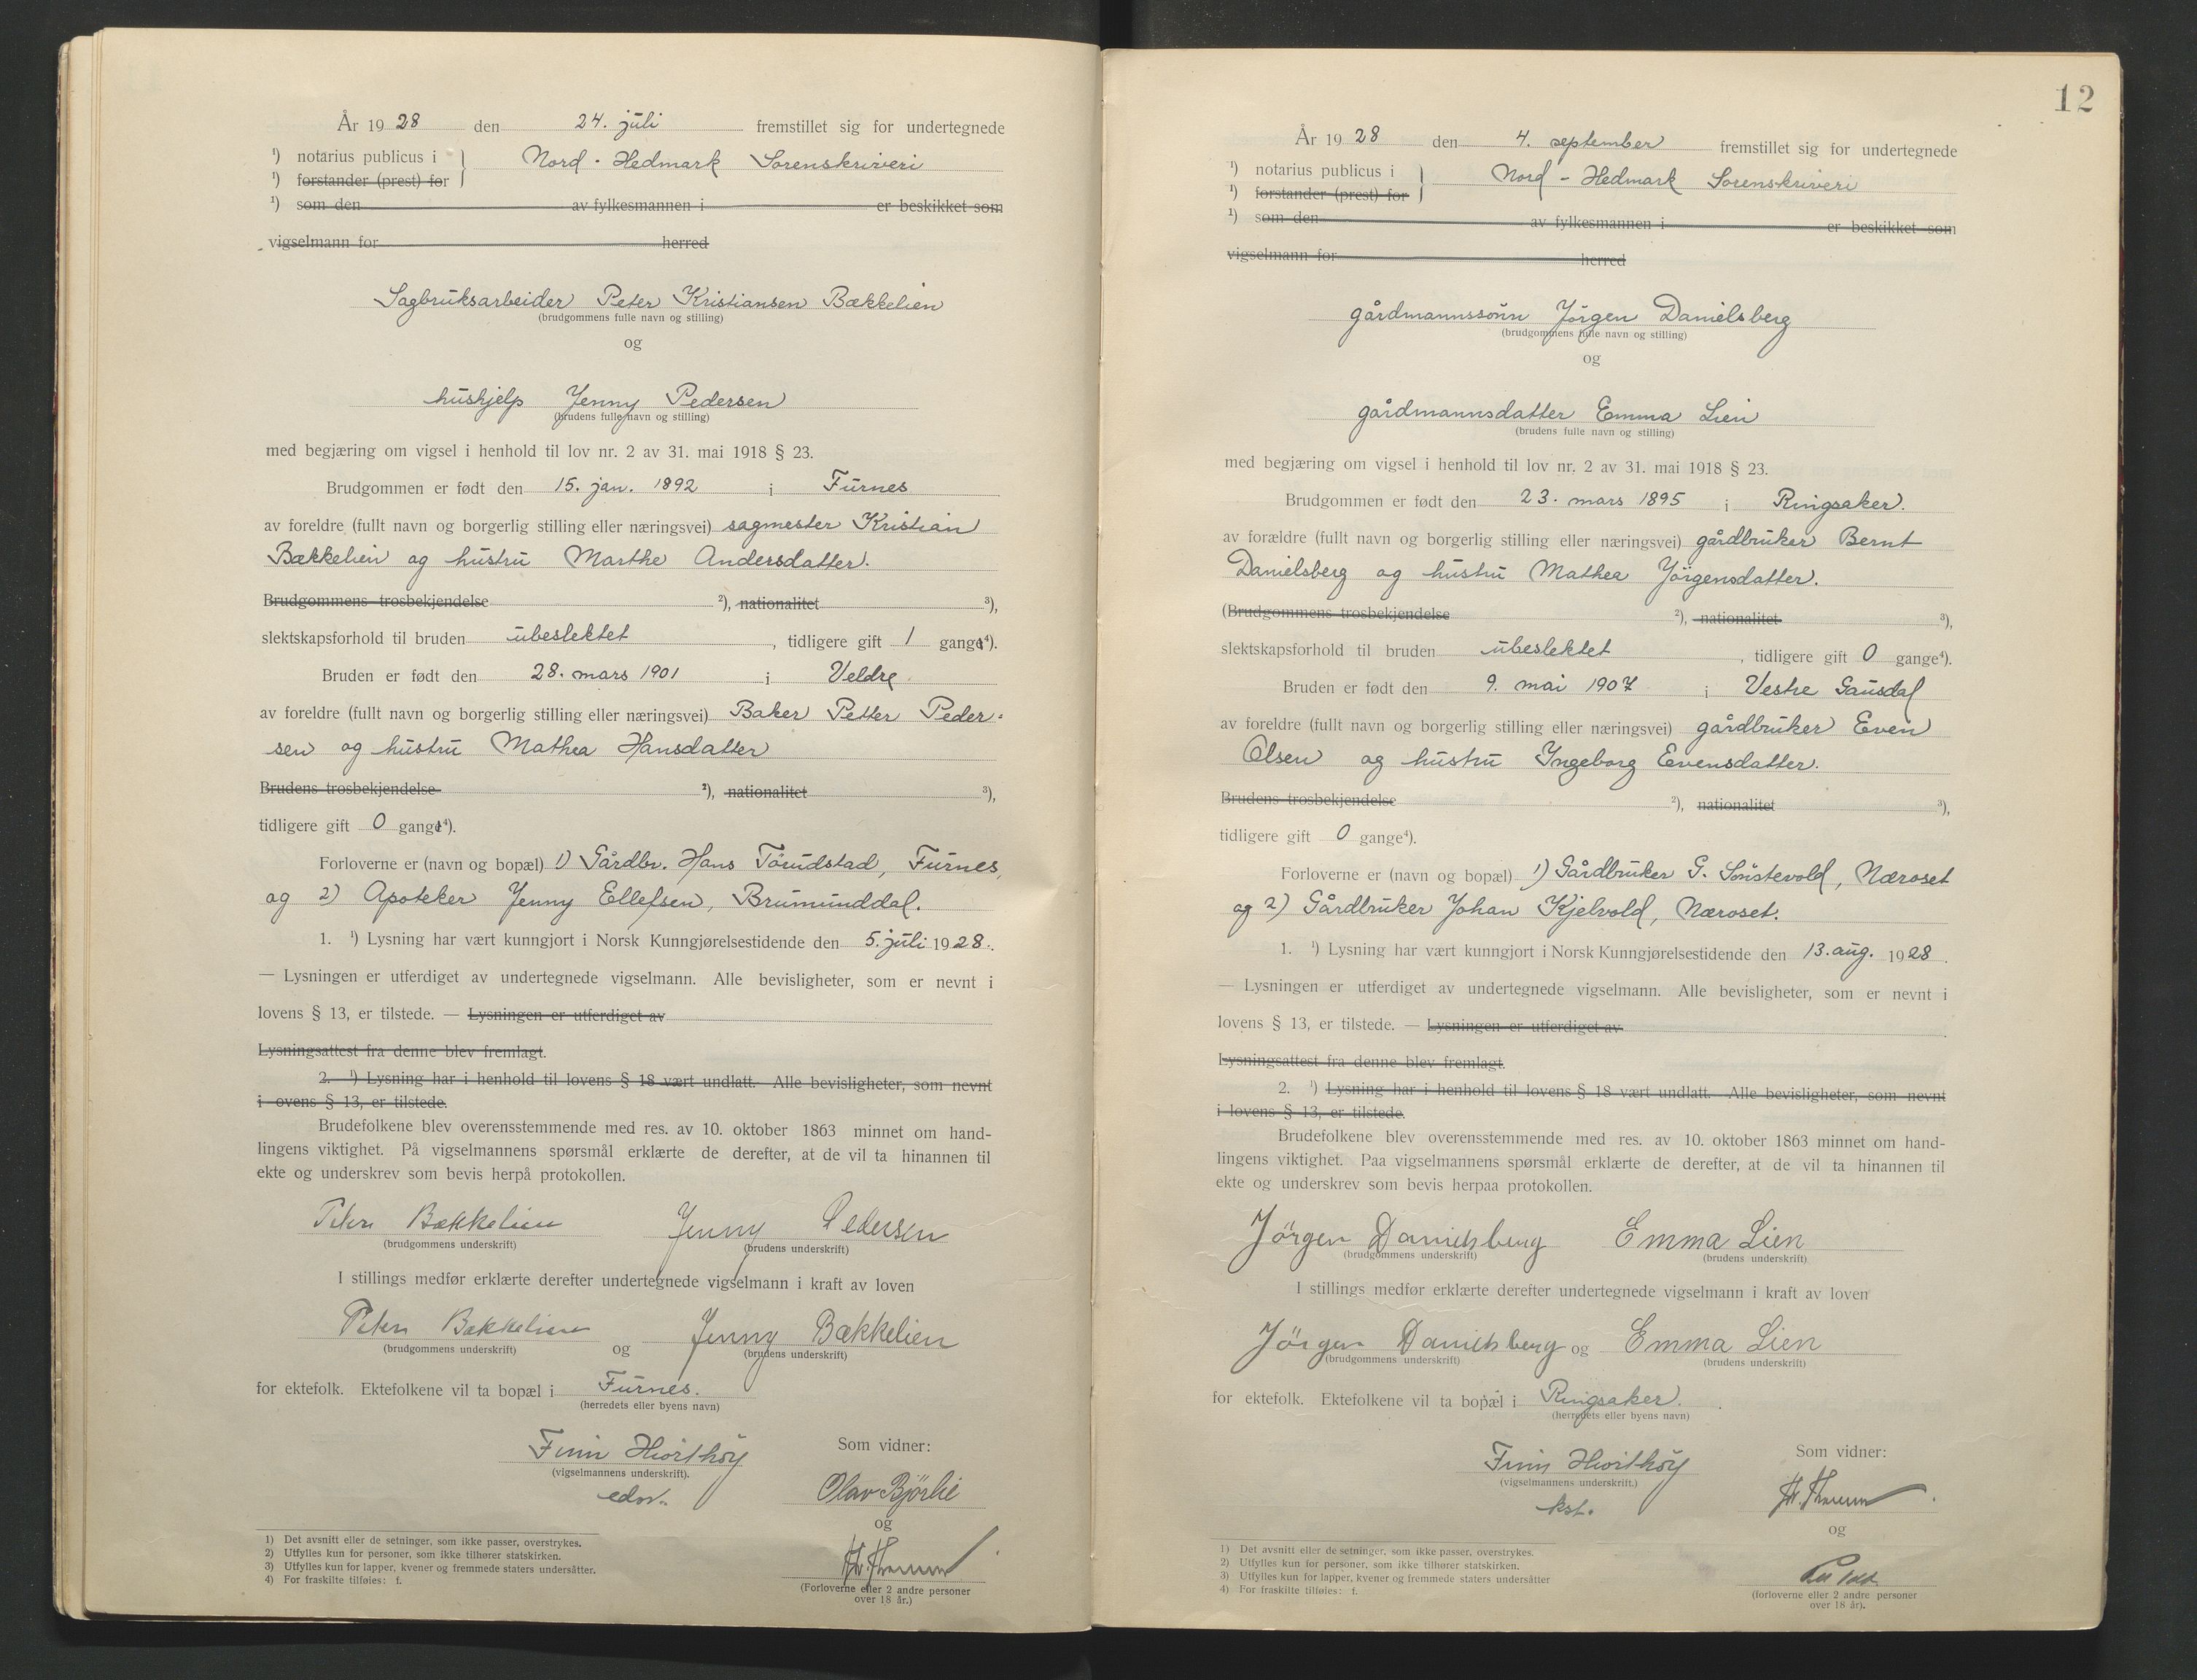 År 1928 den 24. juli fremstillet sig for undertegnede
¹) notarius publicus i } Nord-Hedmark Sorenskriveri
¹) forstander (prest) for
¹) som den av fylkesmannen i er beskikket som
vigselmann for herred
Sagbruksarbeider Peter Kristiansen Bækkelien
(brudgommens fulle navn og stilling)
og
hushjelp Jenny Pedersen
(brudens fulle navn og stilling)
med begjæring om vigsel i henhold til lov nr. 2 av 31. mai 1918 § 23.
Brudgommen er født den 15. jan. 1892 i Furnes
av foreldre (fullt navn og borgerlig stilling eller næringsvei) sagmester Kristian
Bækkelien og hustru Marthe Andersdatter.
Brudgommens trosbekjendelse ²), nationalitet ³),
slektskapsforhold til bruden ubeslektet, tidligere gift 1 gang⁴).
Bruden er født den 28. mars 1901 i Veldre
av foreldre (fullt navn og borgerlig stilling eller næringsvei) Baker Petter Peder-
sen og hustru Mathea Hansdatter
Brudens trosbekjendelse ²), nationalitet ³),
tidligere gift 0 gang⁴).
Forloverne er (navn og bopæl) 1) Gårdbr. Hans Torudstad, Furnes,
og 2) Apoteker Jenny Ellefsen, Brumunddal.
1. ¹) Lysning har vært kunngjort i Norsk Kunngjørelsestidende den 5. juli 1928.
— Lysningen er utferdiget av undertegnede vigselmann. Alle bevisligheter, som er nevnt i
lovens § 13, er tilstede. — Lysningen er utferdiget av
Lysningsattest fra denne blev fremlagt.
2. ¹) Lysning har i henhold til lovens § 18 vært undlatt. Alle bevisligheter, som nevnt
i ovens § 13, er tilstede.
Brudefolkene blev overensstemmende med res. av 10. oktober 1863 minnet om hand-
lingens viktighet. På vigselmannens spørsmål erklærte de derefter, at de vil ta hinannen til
ekte og underskrev som bevis herpå protokollen.
Peter Bækkelien Jenny Pedersen
(brudgommens underskrift) (brudens underskrift)
I stillings medfør erklærte derefter undertegnede vigselmann i kraft av loven
Peter Bækkelien og Jenny Bækkelien
(brudgommens underskrift) (brudens underskrift)
for ektefolk. Ektefolkene vil ta bopæl i Furnes.
(herredets eller byens navn)
Finn Hiorthöy
(vigselmannens underskrift).
edsv.
Som vidner:
Olav Bjørlie
og
(Forloverne eller 2 andre personer
over 18 år.)
1) Det avsnitt eller de setninger, som ikke passer, overstrykes.
2) Utfylles kun for personer, som ikke tilhører statskirken.
3) Utfylles kun for lapper, kvener og fremmede staters undersåtter.
4) For fraskilte tilføies: f.
12
År 1928 den 4. september fremstillet sig for undertegnede
¹) notarius publicus i } Nord-Hedmark Sorenskriveri
¹) forstander (prest) for
¹) som den av fylkesmannen i er beskikket som
vigselmann for herred
gårdmannssønn Jörgen Danielsberg
(brudgommens fulle navn og stilling)
og
gårdmannsdatter Emma Lien
(brudens fulle navn og stilling)
med begjæring om vigsel i henhold til lov nr. 2 av 31. mai 1918 § 23.
Brudgommen er født den 23. mars 1895 i Ringsaker.
av forældre (fullt navn og borgerlig stilling eller næringsvei) gårdbruker Bernt
Danielsberg og hustru Mathea Jörgensdatter.
(Brudgommens trosbekjendelse ²), nationalitet ³),
slektskapsforhold til bruden ubeslektet, tidligere gift 0 gange⁴).
Bruden er født den 9. mai 1907 i Vestre Gausdal
av foreldre (fullt navn og borgerlig stilling eller næringsvei) gårdbruker Even
Olsen og hustru Ingeborg Evensdatter.
Brudens trosbekjendelse ²), nationalitet ³),
tidligere gift 0 gange⁴).
Forloverne er (navn og bopæl) 1) Gårdbruker G. Sönstevold, Næroset
og 2) Gårdbruker Johan Kjelvold, Næroset.
1. ¹) Lysning har vært kunngjort i Norsk Kunngjørelsestidende den 13. aug. 1928.
— Lysningen er utferdiget av undertegnede vigselmann. Alle bevisligheter, som er nevnt i
lovens § 13, er tilstede. — Lysningen er utferdiget av
Lysningsattest fra denne blev fremlagt.
2. ¹) Lysning har i henhold til lovens § 18 vært undlatt. Alle bevisligheter, som nevnt
i lovens § 13, er tilstede.
Brudefolkene blev overensstemmende med res. av 10. oktober 1863 minnet om hand-
lingens viktighet. Paa vigselmannens spørsmål erklærte de derefter, at de vil ta hinannen til
ekte og underskrev som bevis herpaa protokollen.
Jörgen Danielsberg Emma Lien
(brudgommens underskrift) (brudens underskrift)
I stillings medfør erklærte derefter undertegnede vigselmann i kraft av loven
Jörgen Danielsberg og Emma Lien
(brudgommens underskrift) (brudens underskrift)
for ektefolk. Ektefolkene vil ta bopæl i Ringsaker.
(herredets eller byens navn)
Finn Hiorthöy
(vigselmannens underskrift.)
kst.
Som vidner:
og
(forloverne eller 2 andre personer
over 18 år).
1) Det avsnitt eller de setninger, som ikke passer, overstrykes.
2) Utfylles kun for personer, som ikke tilhører statskirken.
3) Utfylles kun for lapper, kvener og fremmede staters undersåtter
4) For fraskilte tilføies: f.